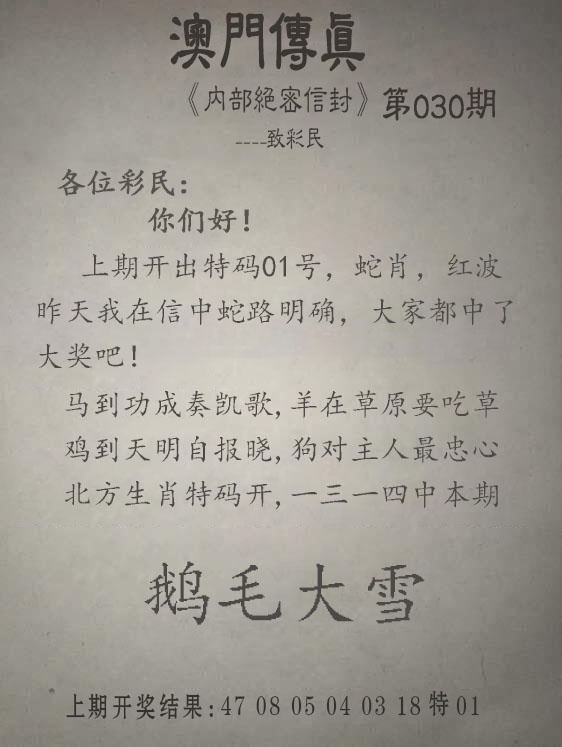 澳門傳眞
《内部絕密信封》第030期
----致彩民
各位彩民：
你们好！
上期开出特码01号，蛇肖，红波
昨天我在信中蛇路明确，大家都中了
大奖吧！
马到功成奏凯歌,羊在草原要吃草
鸡到天明自报晓,狗对主人最忠心
北方生肖特码开,一三一四中本期
鹅毛大雪
上期开奖结果:47 08 05 04 03 18 特 01